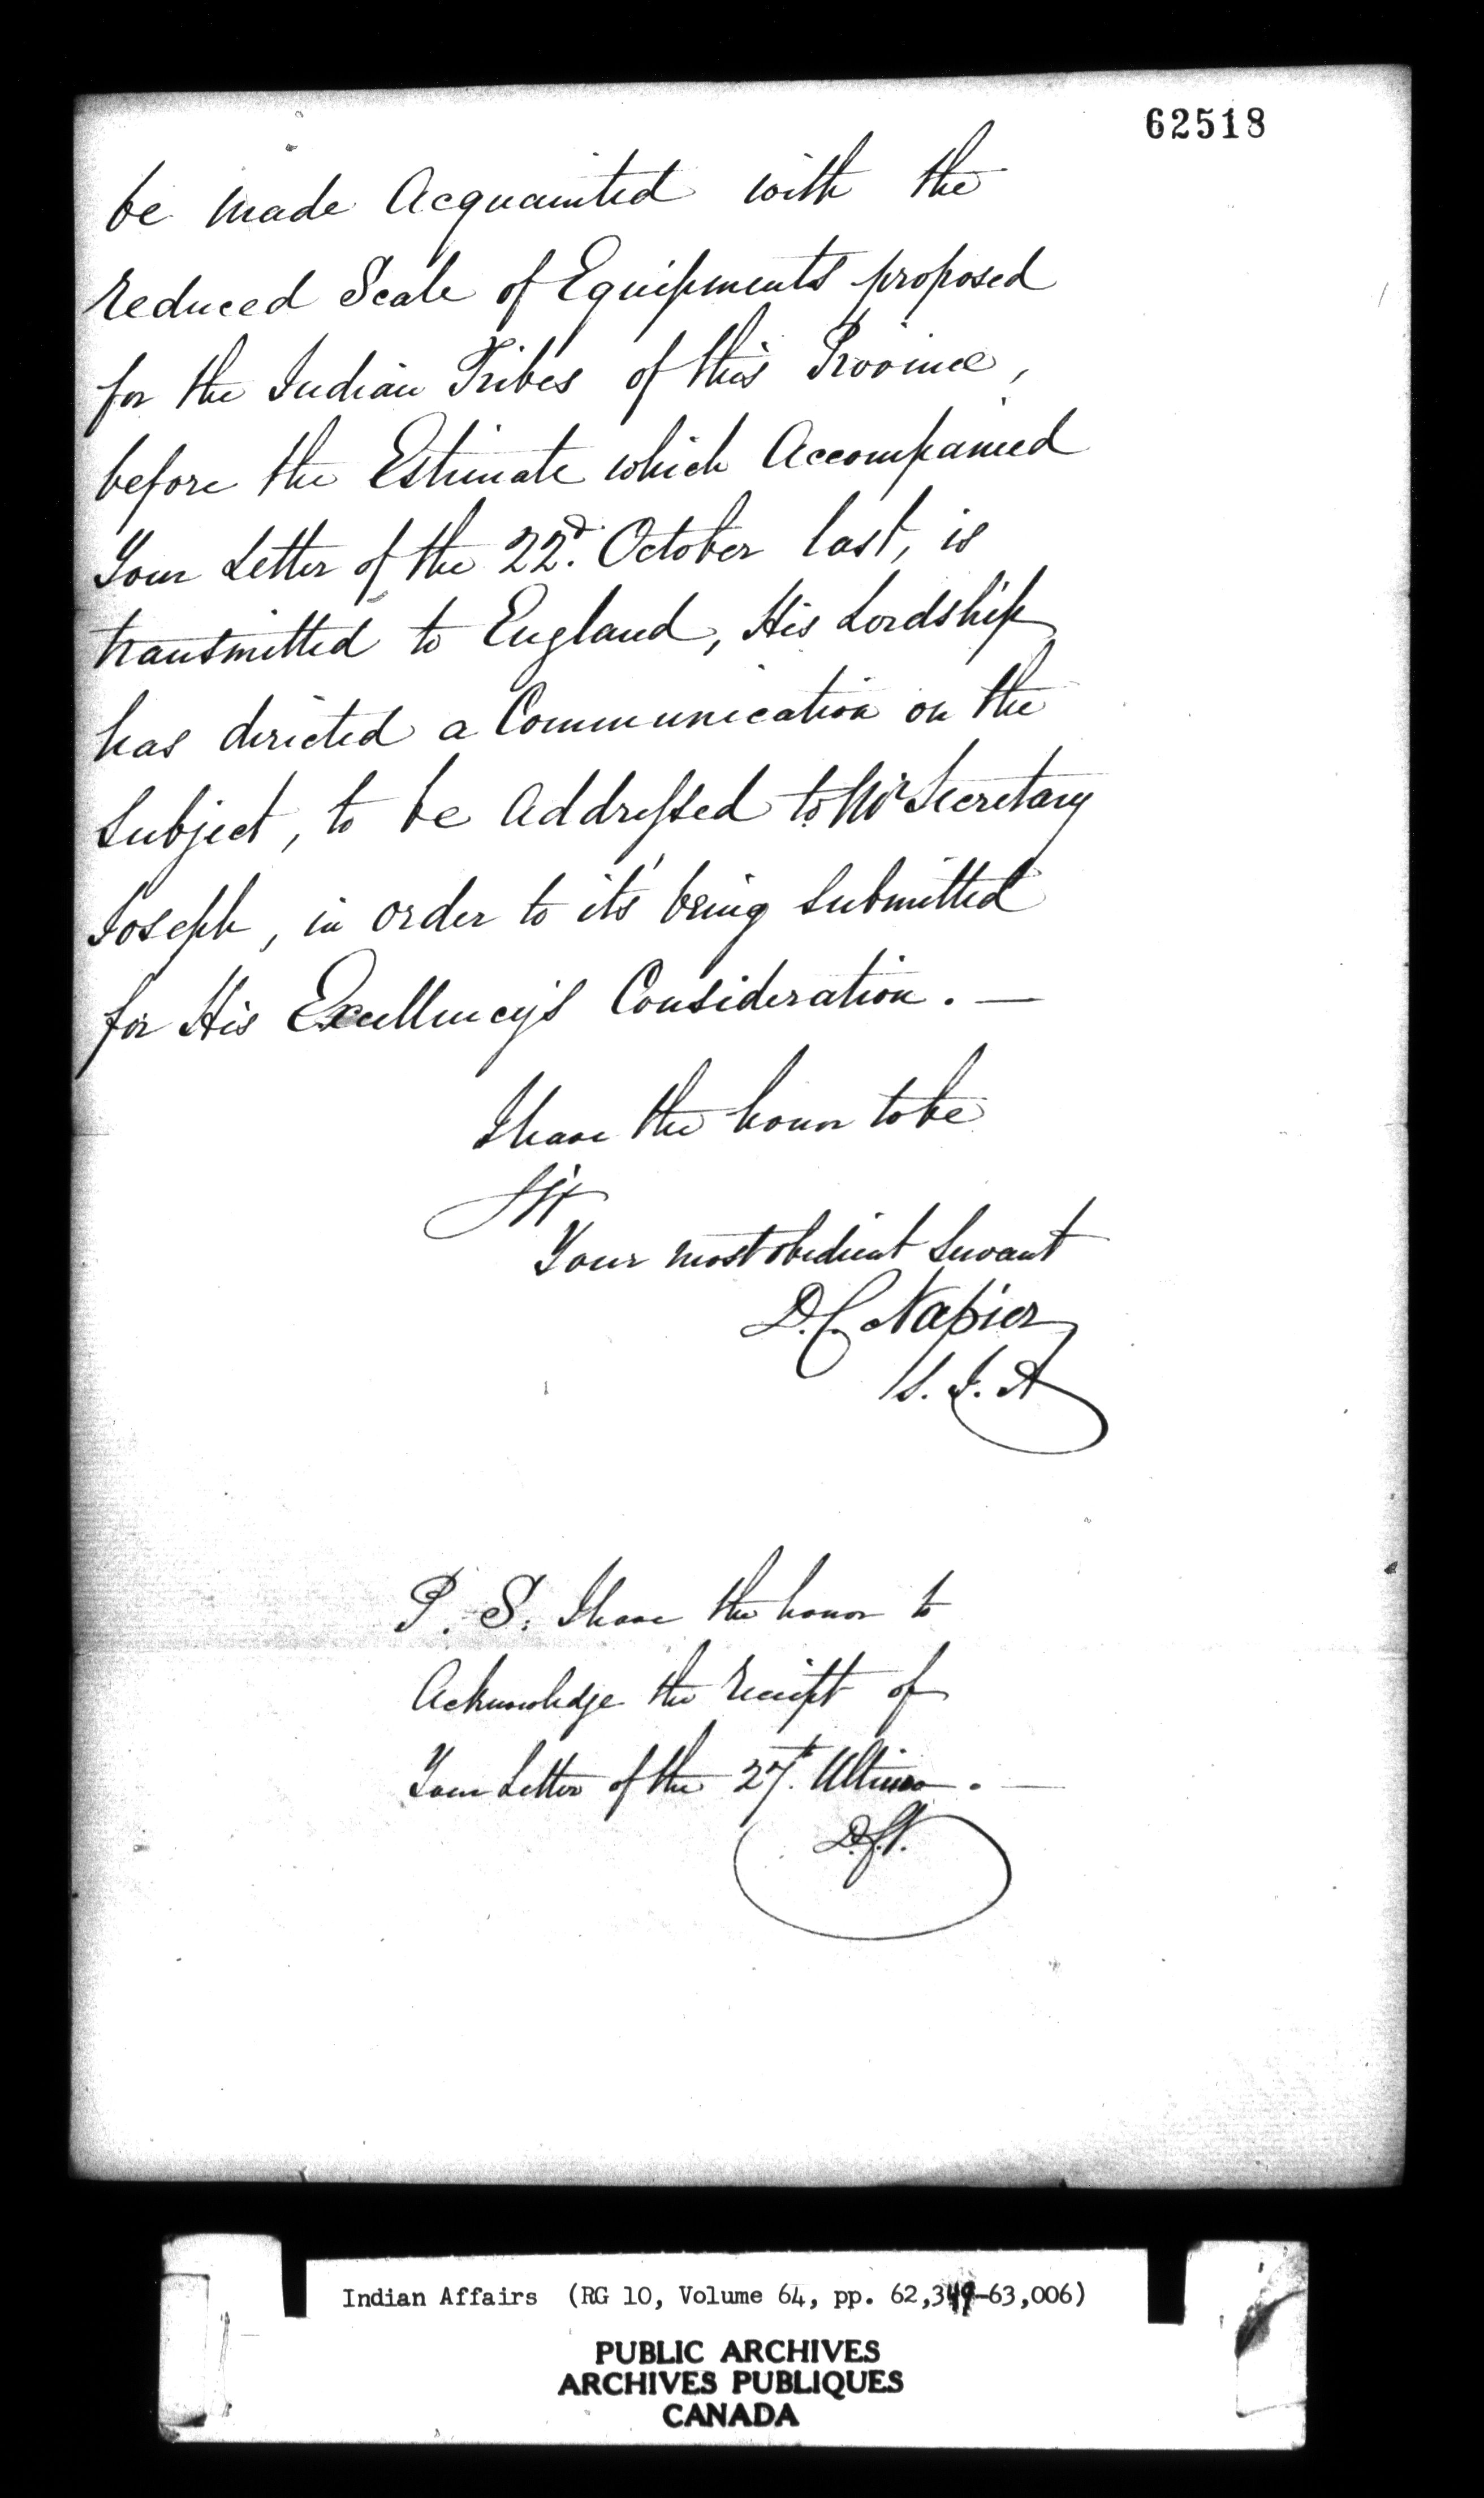 62518
be made Acquainted with the
reduced Scale of Equipments proposed
for the Indian Tribes of this Province,
before the Estimate which Accompanied
Your Letter of the 22d. October last, is
transmitted to England, His Lordship
has directed a Communication on the
Subject, to be Addressed to Mr Secretary
Joseph, in order to it's being Submitted
for His Excellency's Consideration. —
I have the honor to be
Sir
Your most obedient Servant
D. C. Napier
S. I. A
P. S. I have the honor to
Acknowledge the receipt of
Your Letter of the 27th. Ultimo. —
D.C.N.
Indian Affairs (RG 10, Volume 64, pp. 62,349-63,006)
PUBLIC ARCHIVES
ARCHIVES PUBLIQUES
CANADA